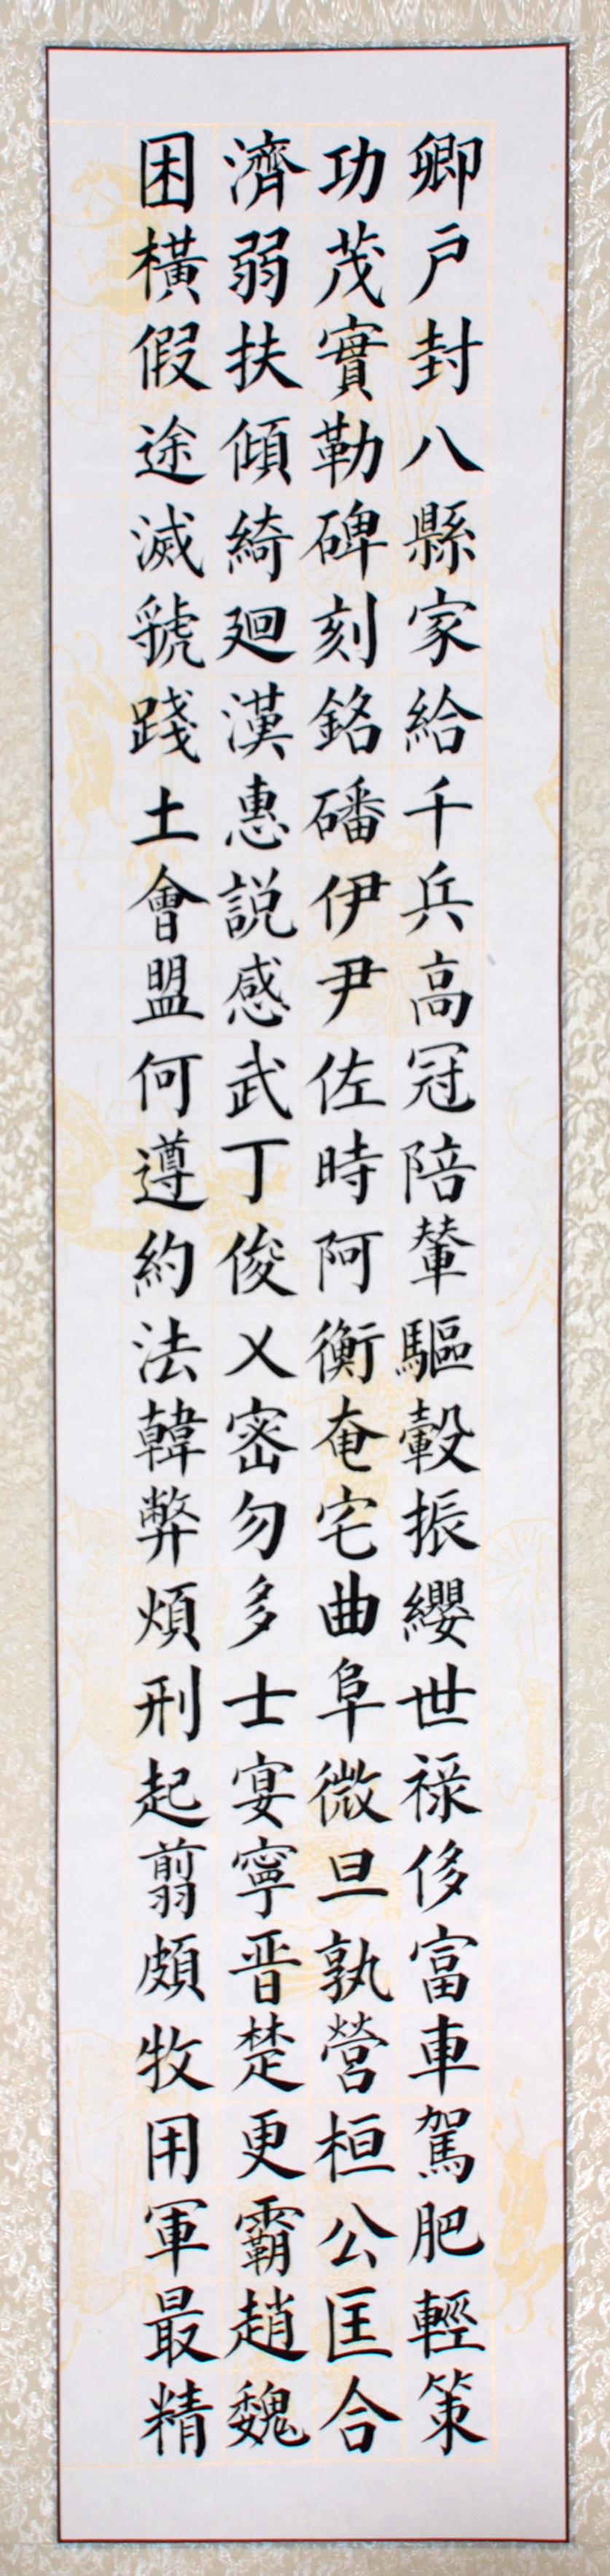 卿户封八縣家給千兵高冠陪輦驅轂振纓世禄侈富車駕肥輕策
功茂實勒碑刻銘磻伊尹佐時阿衡奄宅曲阜微旦孰營桓公匡合
濟弱扶傾綺廻漢惠説感武丁俊乂密勿多士寔寧晋楚更霸趙魏
困橫假途滅虢踐土會盟何遵約法韓弊煩刑起翦頗牧用軍最精